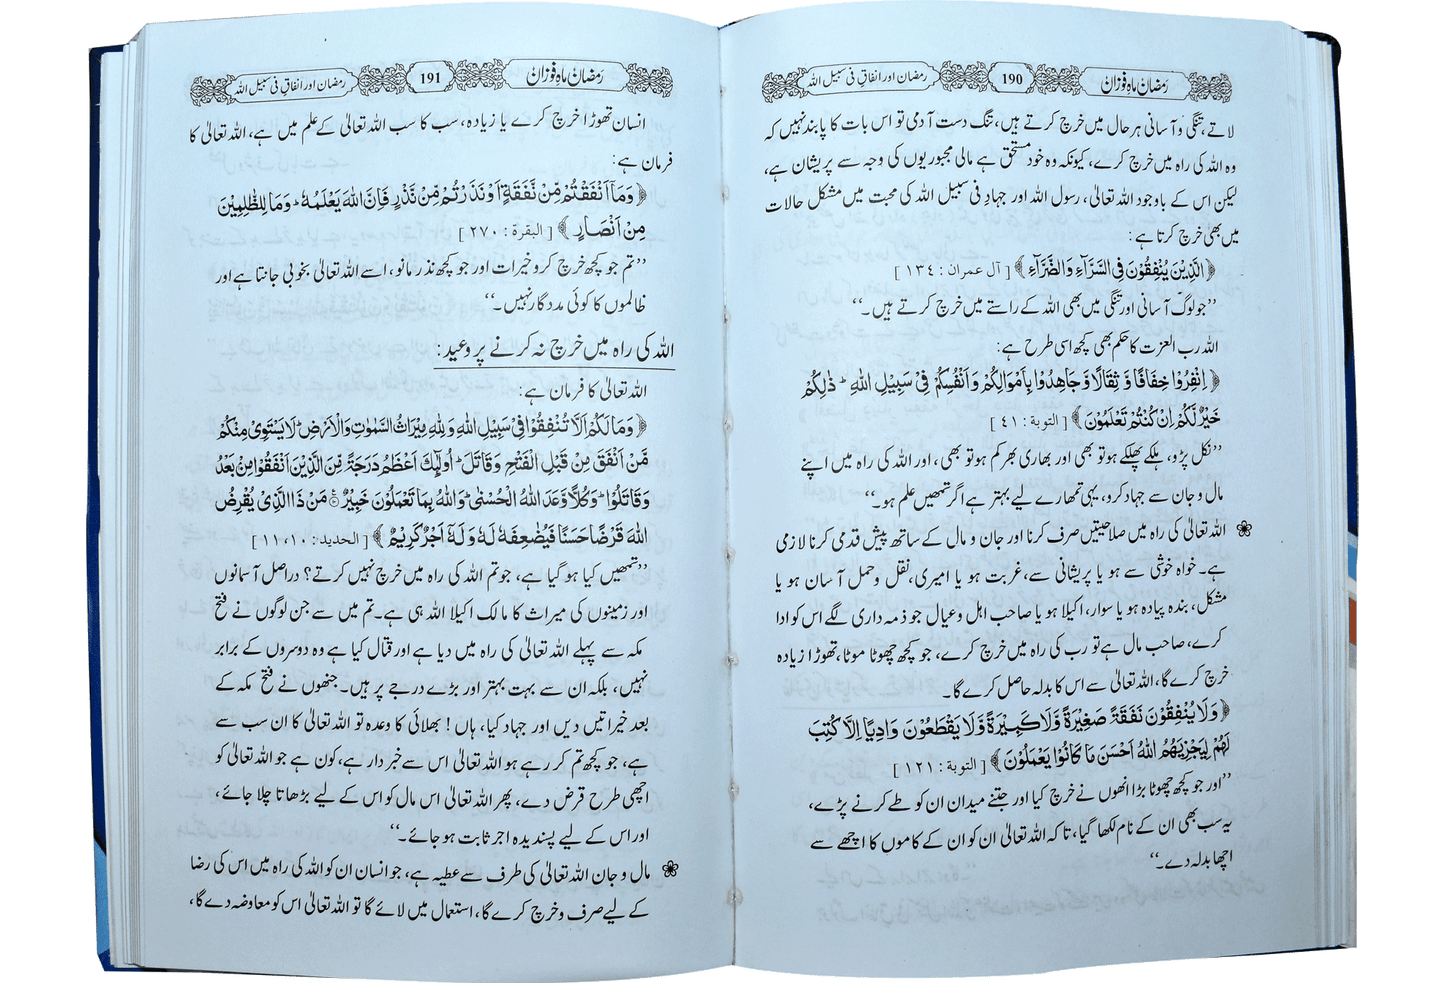 رمضان ماہ فوزان
190
رمضان اور انفاق فی سبیل اللہ
لاتے، تنگی و آسانی ہر حال میں خرچ کرتے ہیں، تنگ دست آدمی تو اس بات کا پابند نہیں کہ
وہ اللہ کی راہ میں خرچ کرے، کیونکہ وہ خود مستحق ہے مالی مجبوریوں کی وجہ سے پریشان ہے،
لیکن اس کے باوجود اللہ تعالیٰ، رسول اللہ اور جہادِ فی سبیل اللہ کی محبت میں مشکل حالات
میں بھی خرچ کرتا ہے:
﴿الَّذِيْنَ يُنْفِقُوْنَ فِي السَّرَّآءِ وَالضَّرَّآءِ﴾ [آل عمران : ١٣٤]
’’جو لوگ آسانی اور تنگی میں بھی اللہ کے راستے میں خرچ کرتے ہیں۔‘‘
اللہ رب العزت کا حکم بھی کچھ اسی طرح ہے:
﴿اِنْفِرُوْا خِفَافًا وَّ ثِقَالًا وَّ جَاهِدُوْا بِاَمْوَالِكُمْ وَ اَنْفُسِكُمْ فِيْ سَبِيْلِ اللّٰهِ ۭ ذٰلِكُمْ
خَيْرٌ لَّكُمْ اِنْ كُنْتُمْ تَعْلَمُوْنَ﴾ [التوبة : ٤١]
’’نکل پڑو، ہلکے پھلکے ہو تو بھی اور بھاری بھرکم ہو تو بھی، اور اللہ کی راہ میں اپنے
مال و جان سے جہاد کرو، یہی تمھارے لیے بہتر ہے اگر تمھیں علم ہو۔‘‘
اللہ تعالیٰ کی راہ میں صلاحیتیں صرف کرنا اور جان و مال کے ساتھ پیش قدمی کرنا لازمی
ہے۔ خواہ خوشی سے ہو یا پریشانی سے، غربت ہو یا امیری، نقل و حمل آسان ہو یا
مشکل، بندہ پیادہ ہو یا سوار، اکیلا ہو یا صاحب اہل و عیال جو ذمہ داری لگے اس کو ادا
کرے، صاحب مال ہے تو رب کی راہ میں خرچ کرے، جو کچھ چھوٹا موٹا، تھوڑا زیادہ
خرچ کرے گا، اللہ تعالیٰ سے اس کا بدلہ حاصل کرے گا۔
﴿وَلَا يُنْفِقُوْنَ نَفَقَةً صَغِيْرَةً وَّلَا كَبِيْرَةً وَّلَا يَقْطَعُوْنَ وَادِيًا اِلَّا كُتِبَ
لَهُمْ لِيَجْزِيَهُمُ اللّٰهُ اَحْسَنَ مَا كَانُوْا يَعْمَلُوْنَ﴾ [التوبة : ١٢١]
’’اور جو کچھ چھوٹا بڑا انھوں نے خرچ کیا اور جتنے میدان ان کو طے کرنے پڑے،
یہ سب بھی ان کے نام لکھا گیا، تاکہ اللہ تعالیٰ ان کو ان کے کاموں کا اچھے سے
اچھا بدلہ دے۔‘‘
رمضان ماہ فوزان
191
رمضان اور انفاق فی سبیل اللہ
انسان تھوڑا خرچ کرے یا زیادہ، سب کا سب اللہ تعالیٰ کے علم میں ہے، اللہ تعالیٰ کا
فرمان ہے:
﴿وَمَآ اَنْفَقْتُمْ مِّنْ نَّفَقَةٍ اَوْ نَذَرْتُمْ مِّنْ نَّذْرٍ فَاِنَّ اللّٰهَ يَعْلَمُهٗ ۭ وَمَا لِلظّٰلِمِيْنَ
مِنْ اَنْصَارٍ﴾ [البقرة : ٢٧٠]
’’تم جو کچھ خرچ کرو خیرات اور جو کچھ نذر مانو، اسے اللہ تعالیٰ بخوبی جانتا ہے اور
ظالموں کا کوئی مددگار نہیں۔‘‘
اللہ کی راہ میں خرچ نہ کرنے پر وعید:
اللہ تعالیٰ کا فرمان ہے:
﴿وَمَا لَكُمْ اَلَّا تُنْفِقُوْا فِيْ سَبِيْلِ اللّٰهِ وَلِلّٰهِ مِيْرَاثُ السَّمٰوٰتِ وَالْاَرْضِ ۭ لَا يَسْتَوِيْ مِنْكُمْ
مَّنْ اَنْفَقَ مِنْ قَبْلِ الْفَتْحِ وَقَاتَلَ ۭ اُولٰٓئِكَ اَعْظَمُ دَرَجَةً مِّنَ الَّذِيْنَ اَنْفَقُوْا مِنْۢ بَعْدُ
وَقَاتَلُوْا ۭ وَكُلًّا وَّعَدَ اللّٰهُ الْحُسْنٰى ۭ وَاللّٰهُ بِمَا تَعْمَلُوْنَ خَبِيْرٌ ۧ مَنْ ذَا الَّذِيْ يُقْرِضُ
اللّٰهَ قَرْضًا حَسَنًا فَيُضٰعِفَهٗ لَهٗ وَ لَهٗٓ اَجْرٌ كَرِيْمٌ﴾ [الحديد : ١٠، ١١]
’’تمھیں کیا ہو گیا ہے، جو تم اللہ کی راہ میں خرچ نہیں کرتے؟ دراصل آسمانوں
اور زمینوں کی میراث کا مالک اکیلا اللہ ہی ہے۔ تم میں سے جن لوگوں نے فتح
مکہ سے پہلے اللہ تعالیٰ کی راہ میں دیا ہے اور قتال کیا ہے وہ دوسروں کے برابر
نہیں، بلکہ ان سے بہت بہتر اور بڑے درجے پر ہیں۔ جنھوں نے فتح مکہ کے
بعد خیراتیں دیں اور جہاد کیا، ہاں! بھلائی کا وعدہ تو اللہ تعالیٰ کا ان سب سے
ہے، جو کچھ تم کر رہے ہو اللہ تعالیٰ اس سے خبردار ہے، کون ہے جو اللہ تعالیٰ کو
اچھی طرح قرض دے، پھر اللہ تعالیٰ اس مال کو اس کے لیے بڑھاتا چلا جائے،
اور اس کے لیے پسندیدہ اجر ثابت ہو جائے۔‘‘
مال و جان اللہ تعالیٰ کی طرف سے عطیہ ہے، جو انسان ان کو اللہ کی راہ میں اس کی رضا
کے لیے صرف و خرچ کرے گا، استعمال میں لائے گا تو اللہ تعالیٰ اس کو معاوضہ دے گا،